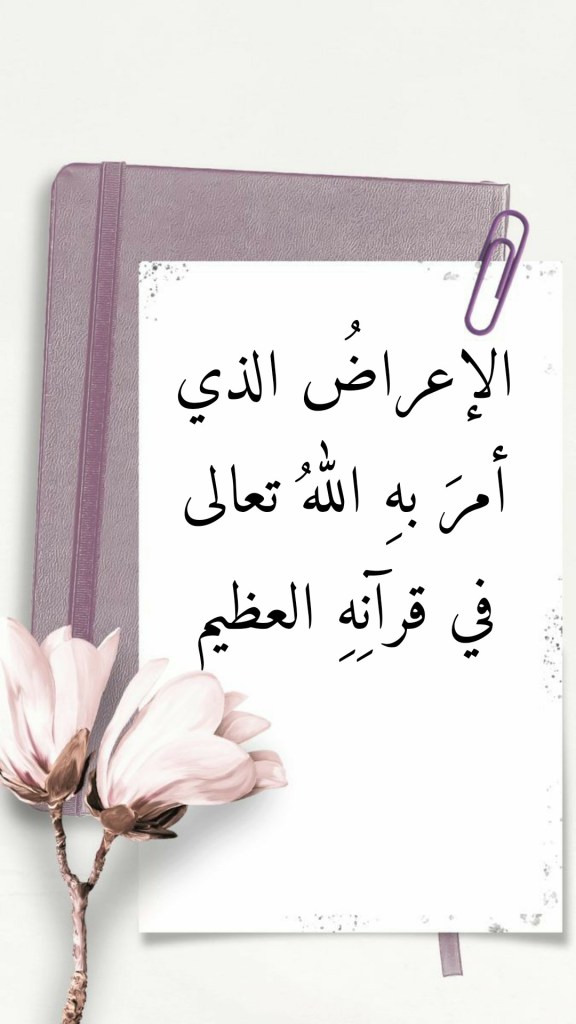 الإعراضُ الذي
أمرَ بهِ اللهُ تعالى
في قرآنِهِ العظيم